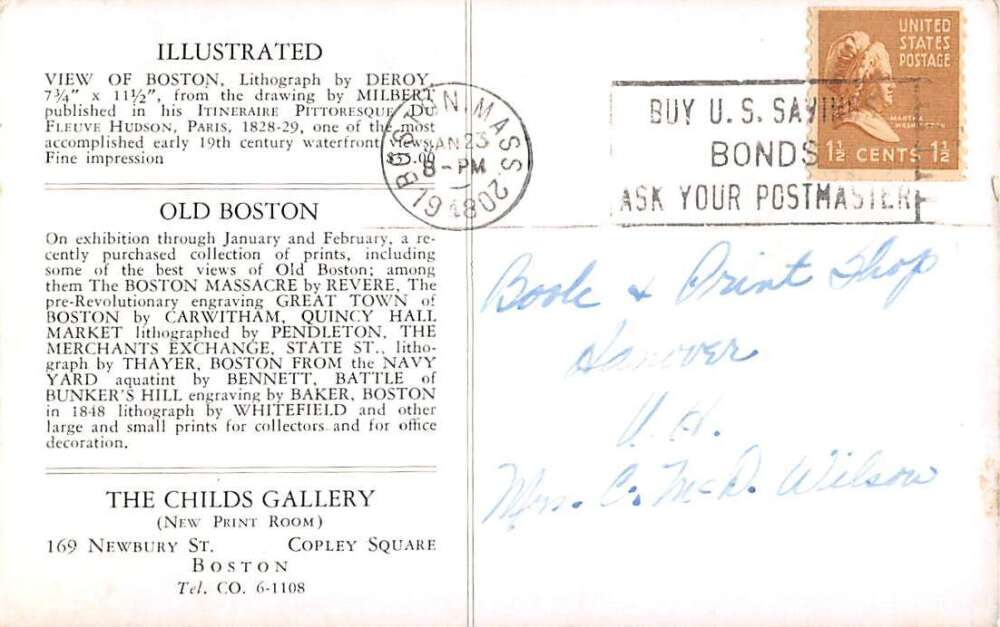 ILLUSTRATED
VIEW OF BOSTON, Lithograph by DEROY,
7¾" x 11½", from the drawing by MILBERT
published in his ITINERAIRE PITTORESQUE DU
FLEUVE HUDSON, PARIS, 1828-29, one of the most
accomplished early 19th century waterfront views.
Fine impression
OLD BOSTON
On exhibition through January and February, a re-
cently purchased collection of prints, including
some of the best views of Old Boston; among
them The BOSTON MASSACRE by REVERE, The
pre-Revolutionary engraving GREAT TOWN of
BOSTON by CARWITHAM, QUINCY HALL
MARKET lithographed by PENDLETON, THE
MERCHANTS EXCHANGE, STATE ST., litho-
graph by THAYER, BOSTON FROM the NAVY
YARD aquatint by BENNETT, BATTLE of
BUNKER'S HILL engraving by BAKER, BOSTON
in 1848 lithograph by WHITEFIELD and other
large and small prints for collectors and for office
decoration.
THE CHILDS GALLERY
(NEW PRINT ROOM)
169 NEWBURY ST. COPLEY SQUARE
BOSTON
Tel. CO. 6-1108
BOSTON, MASS. 20
JAN 23
8-PM
1948
BUY U.S. SAVINGS
BONDS
ASK YOUR POSTMASTER
UNITED
STATES
POSTAGE
MARTHA
WASHINGTON
1½ CENTS 1½
Book & Print Shop
Hanover
N. H.
Mrs. C. McD. Wilson